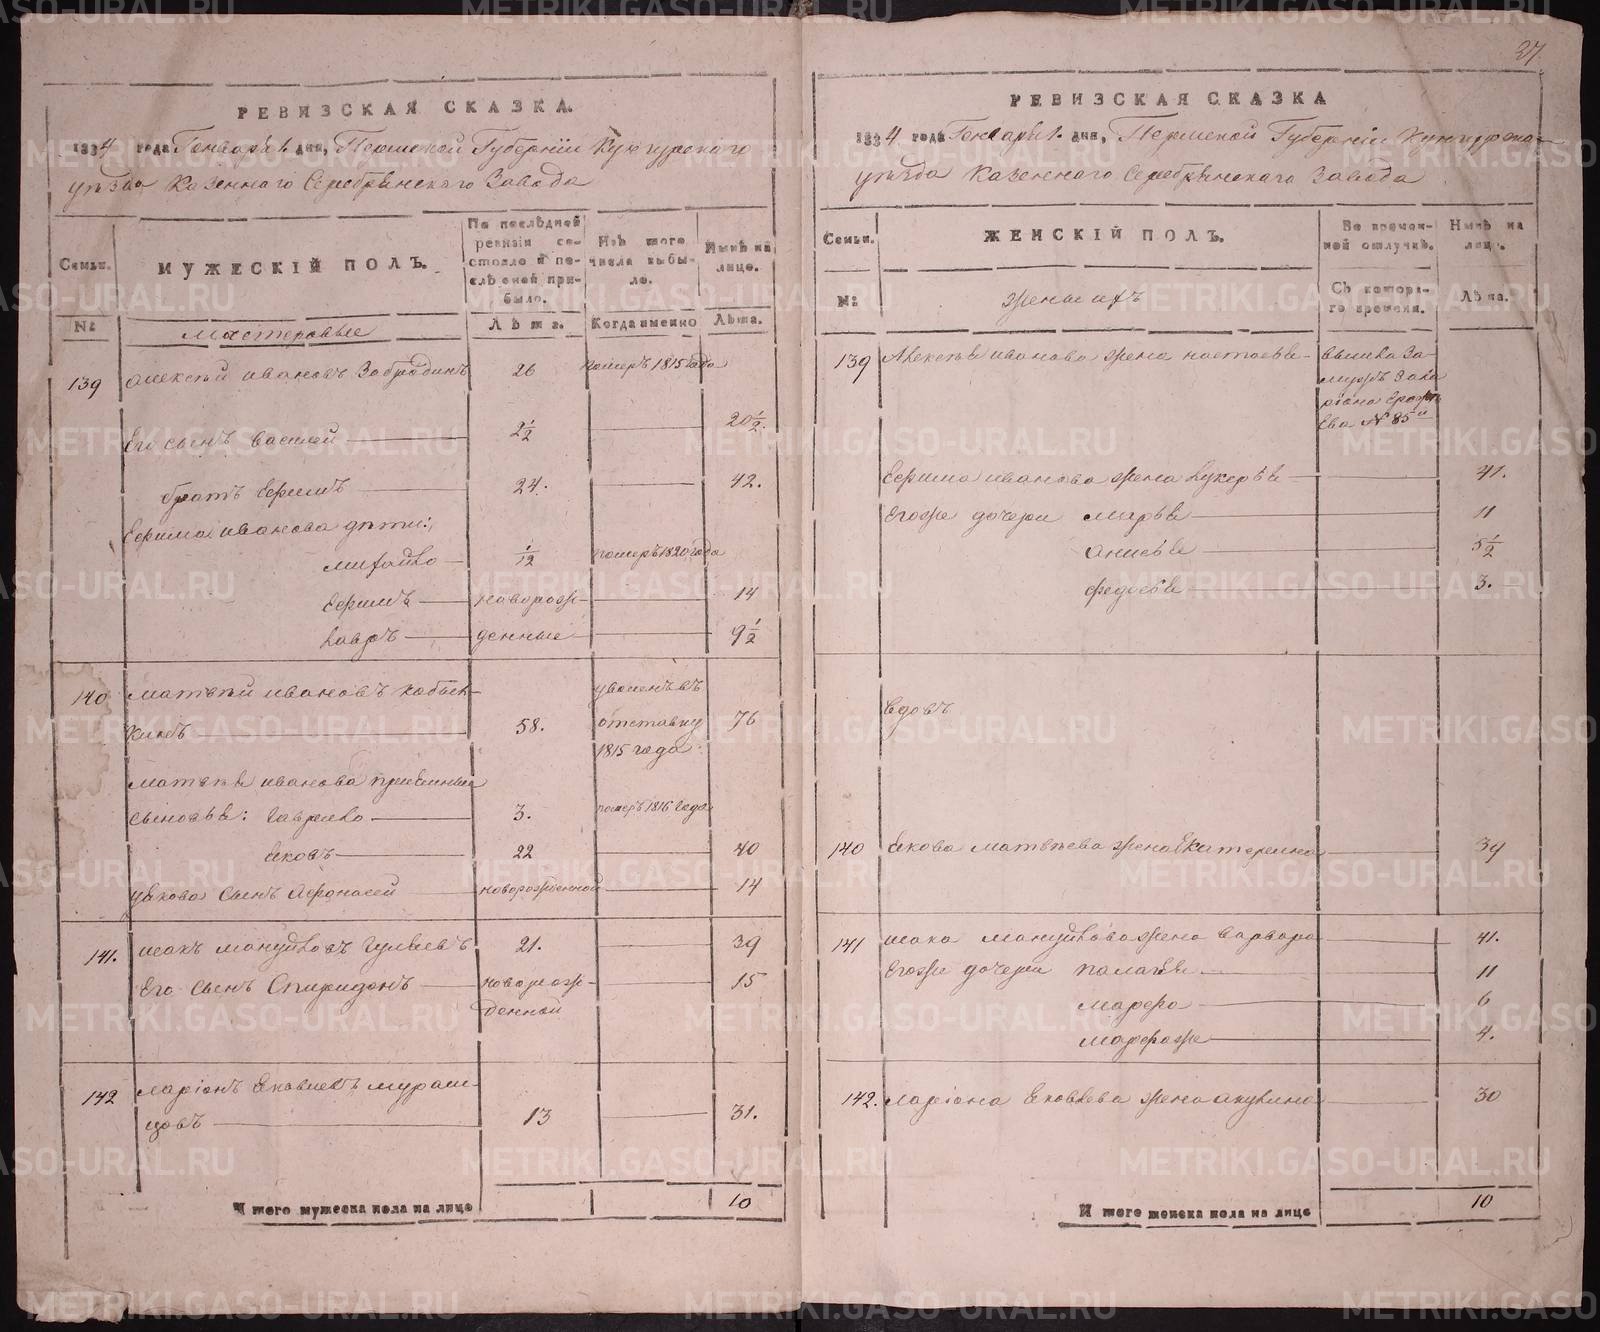 37
РЕВИЗСКАЯ СКАЗКА.
1834 года Генваря 1 дня, Пермской Губернiи Кунгурского
уѣзда Казеннаго Серебрянскаго Завода
Семьи.
МУЖЕСКIЙ ПОЛЪ.
По послѣдней ревизiи состояло и послѣ оной прибыло.
Изъ того числа выбыло.
Нынѣ на лице.
№
Мастеровые
Лѣта.
Когда именно
Лѣта.
139 Алексѣй Ивановъ Забродинъ 26 померъ 1815 года
Его сынъ Василей 2½ 20½.
братъ Ефимъ 24. 42.
Ефима Иванова дѣти:
Михайло 1/12 померъ 1820 года
Ефимъ новорож- 14
Лавръ денные 9½
140 Матвѣй Ивановъ Кобын- уволенъ въ
кинъ 58. отставку 76
1815 года
Матвѣя Иванова приемныя
сыновья: Гаврило 3. померъ 1816 года
Яковъ 22 40
Якова сынъ Афонасей новорожденной 14
141. Исакъ Мануйловъ Гуляевъ 21. 39
Его сынъ Спиридонъ новорож- 15
денной
142 Ларiонъ Яковлевъ Мураш-
цовъ 13 31.
Итого мужеска пола на лице 10
РЕВИЗСКАЯ СКАЗКА
1834 года Генваря 1. дня, Пермской Губернiи Кунгурска-
уѣзда Казеннаго Серебрянскаго Завода
Семьи.
ЖЕНСКIЙ ПОЛЪ.
Во временной отлучкѣ.
Нынѣ на лицо.
№
Жены ихъ
Съ котораго времени.
Лѣта.
139 Алексѣя Иванова жена Настасья вышла за
мужъ Заха
рiона Ерофѣ
ева № 85й
Ефима Иванова жена Лукерья 41.
Егоже дочери Марья 11
Анисья 5½
Федосья 3.
Вдовъ
140 Якова Матвѣева жена Екатерина 39
141 Исака Мануйлова жена Варвара 41.
Егоже дочери Палагѣя 11
Марфа 6
Марфаже 4.
142. Ларiона Яковлева жена Акулина 30
Итого женска пола на лице 10
METRIKI.GASO-URAL.RU